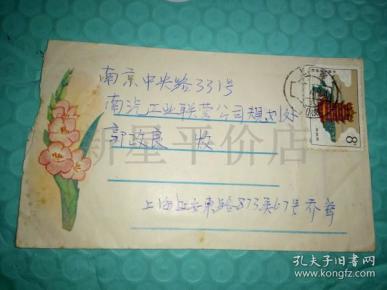 南京中央路331号
南汽工业联营公司规划处
郭政良 收
上海延安东路873弄67号 乔
新星平价店
8
孔夫子旧书网